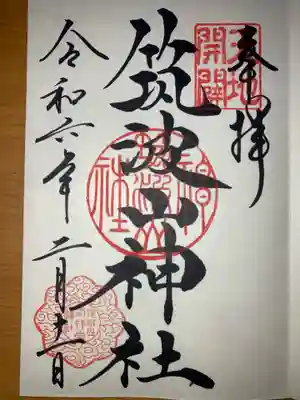 奉拝
天地
開闢
筑波山神社
令和六年二月十一日